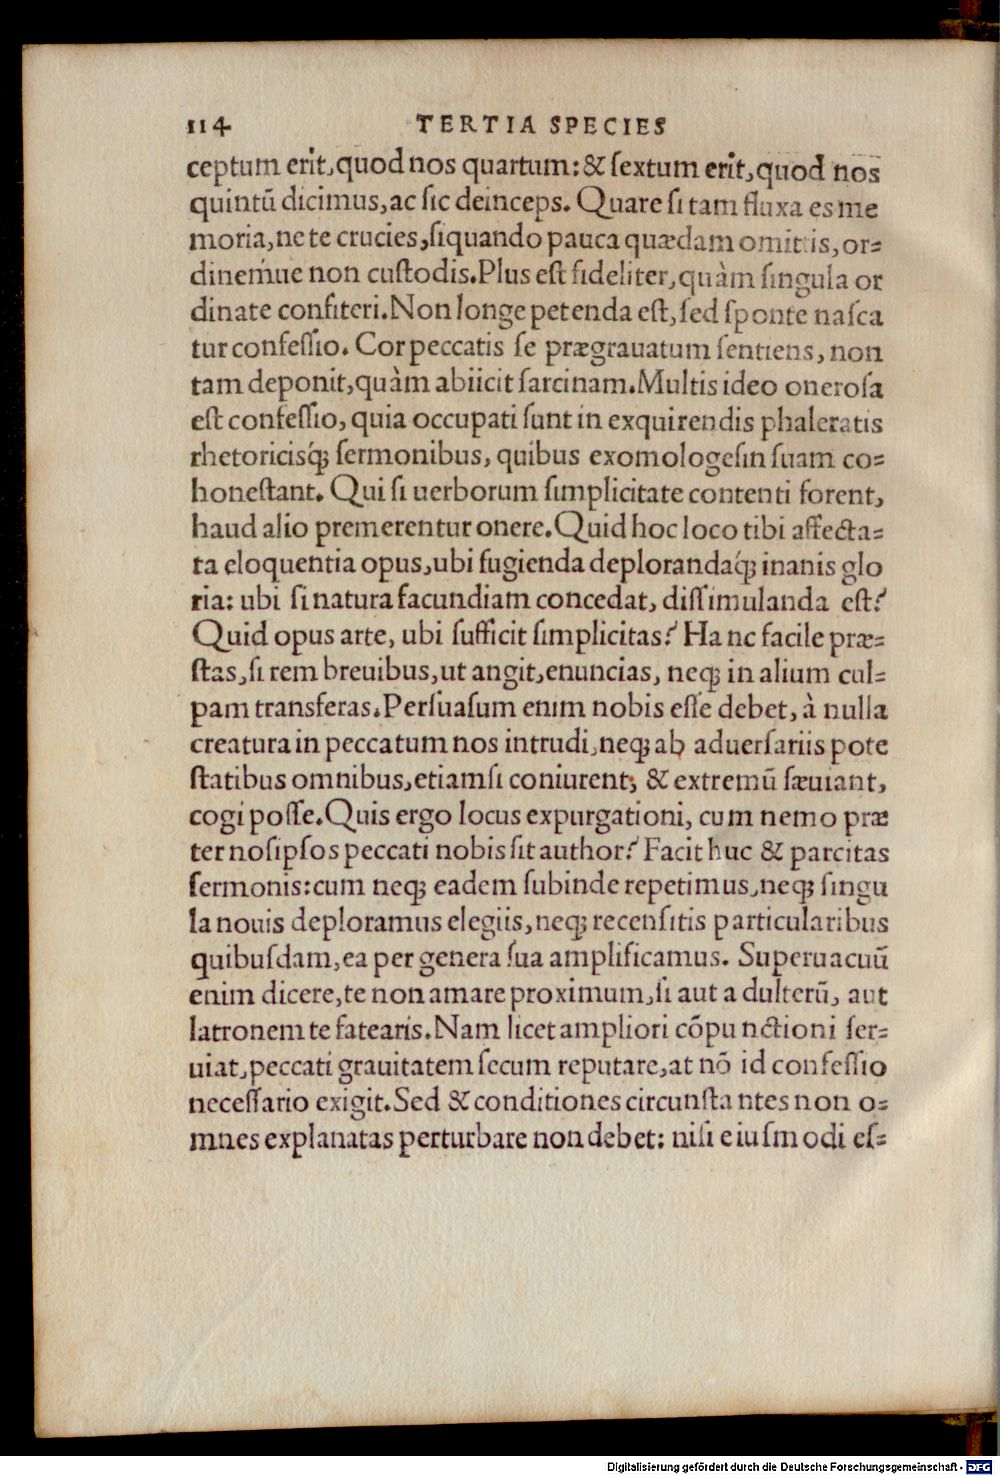 114 TERTIA SPECIES
ceptum erit, quod nos quartum: & ſextum erit, quod nos
quintū dicimus, ac ſic deinceps. Quare ſi tam fluxa es me
moria, ne te crucies, ſiquando pauca quædam omittis, or-
dineḿue non cuſtodis. Plus eſt fideliter, quàm ſingula or
dinate confiteri. Non longe petenda eſt, ſed ſponte naſca
tur confeſſio. Cor peccatis ſe prægrauatum ſentiens, non
tam deponit, quàm abiicit ſarcinam. Multis ideo oneroſa
eſt confeſſio, quia occupati ſunt in exquirendis phaleratis
rhetoricisq́; ſermonibus, quibus exomologeſin ſuam co-
honeſtant. Qui ſi uerborum ſimplicitate contenti forent,
haud alio premerentur onere. Quid hoc loco tibi affecta-
ta eloquentia opus, ubi fugienda deplorandaq́; inanis glo
ria: ubi ſi natura facundiam concedat, diſſimulanda eſt?
Quid opus arte, ubi ſufficit ſimplicitas? Hanc facile præ-
ſtas, ſi rem breuibus, ut angit, enuncias, neq; in alium cul-
pam transferas. Perſuaſum enim nobis eſſe debet, à nulla
creatura in peccatum nos intrudi, neq; ab aduerſariis pote
ſtatibus omnibus, etiamſi coniurent, & extremū ſæuiant,
cogi poſſe. Quis ergo locus expurgationi, cum nemo præ
ter noſipſos peccati nobis ſit author? Facit huc & parcitas
ſermonis: cum neq; eadem ſubinde repetimus, neq; ſingu
la nouis deploramus elegiis, neq; recenſitis particularibus
quibuſdam, ea per genera ſua amplificamus. Superuacuū
enim dicere, te non amare proximum, ſi aut adulterū, aut
latronem te fatearis. Nam licet ampliori cōpunctioni ſer-
uiat, peccati grauitatem ſecum reputare, at nō id confeſſio
neceſſario exigit. Sed & conditiones circunſtantes non o-
mnes explanatas perturbare non debet: niſi eiuſmodi eſ-
Digitalisierung gefördert durch die Deutsche Forschungsgemeinschaft - DFG